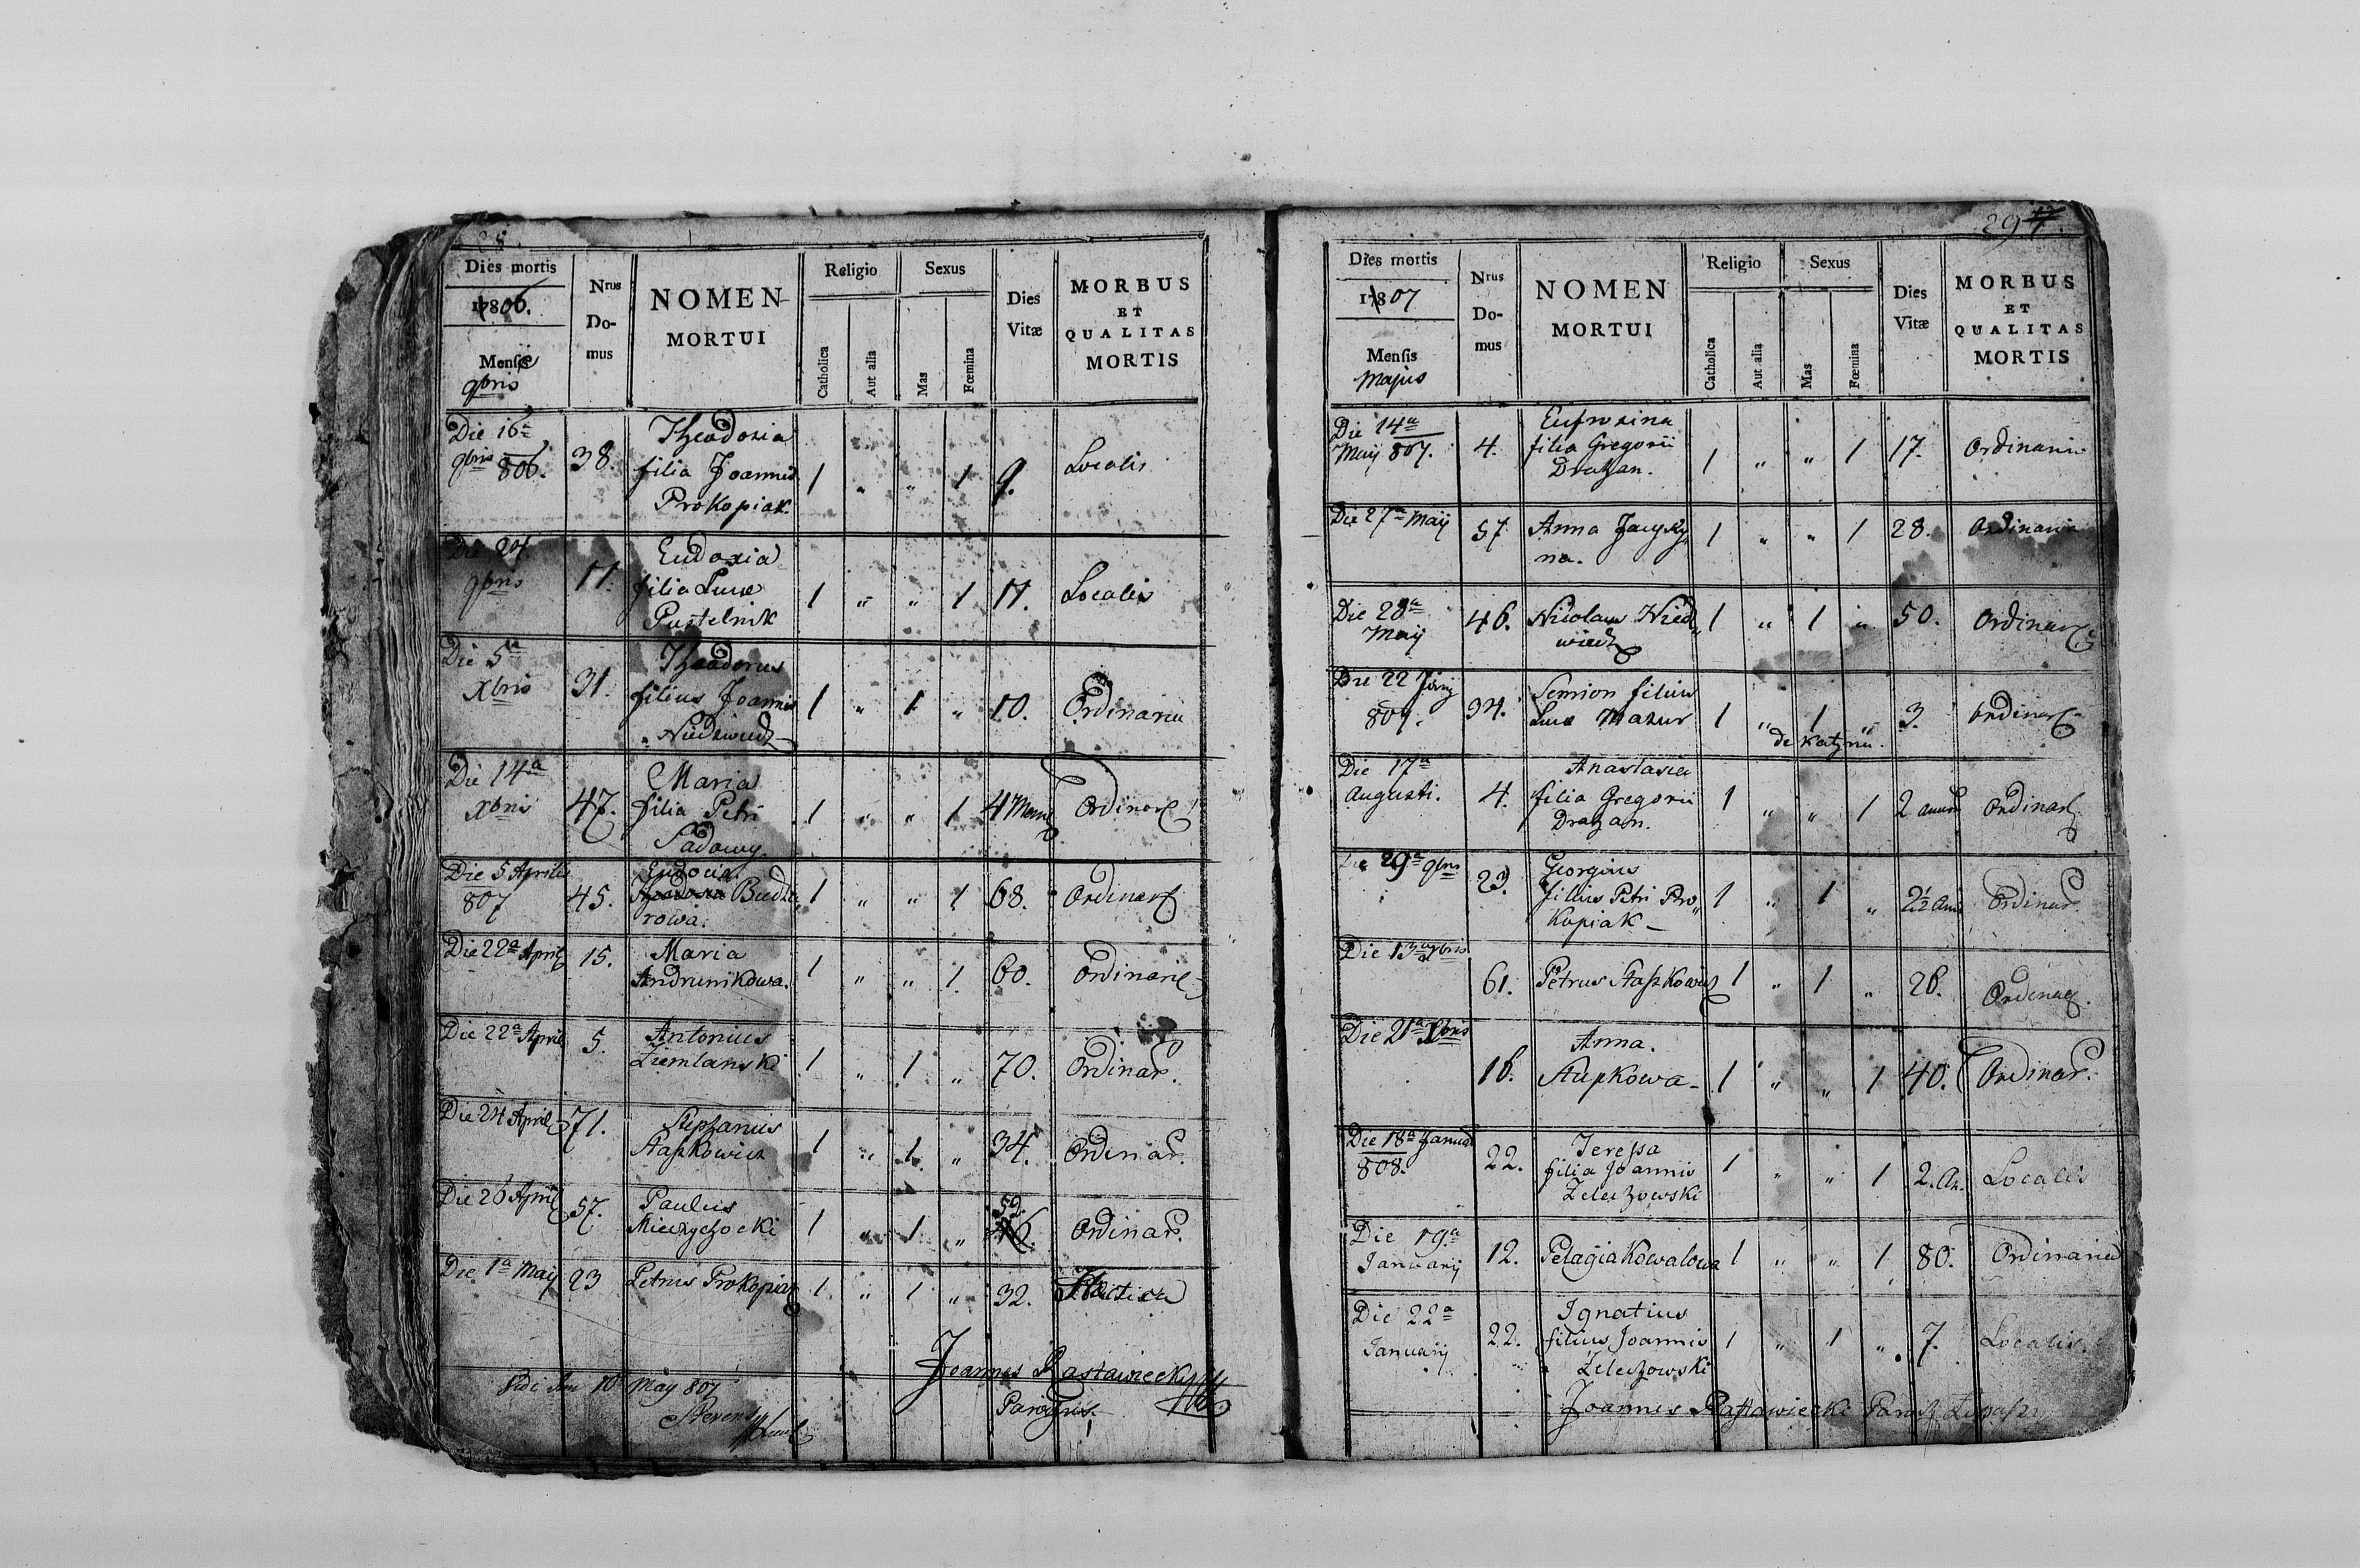 28.
Dies mortis
1806.
Mensis
9bris
Nrus
Do-
mus
NOMEN
MORTUI
Religio
Catholica
Aut alia
Sexus
Mas
Fœmina
Dies
Vitæ
MORBUS
ET
QUALITAS
MORTIS
Die 16a
9bris 806. 38. Theodosia
filia Joannis
Prokopiak. 1 " " 1 9. Localis
Die 24
9bris 11. Eudoxia
filia Lucæ
Pustelnik 1 " " 1 11. Localis
Die 5a
Xbris 31. Theodorus
filius Joannis
Niedzwiedz 1 " 1 " 10. Ordinaria
Die 14a
Xbris 47. Maria
filia Petri
Sadowy. 1 " " 1 4 Ordinar
Die 5 Aprilis
807 45. Eudocia
rowa. 1 " " 1 68. Ordinar
Die 22a April 15. Maria
Andrunikowa. 1 " " 1 60. Ordinari
Die 22a April 5. Antonius
Ziemlanski 1 " 1 " 70. Ordinar.
Die 24 April 71. Stephanus
Staszkowicz 1 " 1 " 34. Ordinar.
Die 26 April 57. Paulus
Mieczyczocki 1 " 1 " 59. Ordinar.
Die 1a Maij 23 Petrus Prokopiak 1 " 1 " 32.
Joannes Rastawiecki
Parochus.
10 May 807
29
Dies mortis
1807
Mensis
Majus
Nrus
Do-
mus
NOMEN
MORTUI
Religio
Catholica
Aut alia
Sexus
Mas
Fœmina
Dies
Vitæ
MORBUS
ET
QUALITAS
MORTIS
Die 14a
Maij 807. 4. Eufrozina
filia Gregorii
Drazan. 1 " " 1 17. Ordinaria
Die 27a Maij 57 Anna
na. 1 " " 1 28. Ordinaria
Die 28a
Maij 46. Nicolaus Nied
wiedz 1 " 1 " 50. Ordinar
Die 22
807. 34. Semion filius
Lucæ Mazur 1 " 1 " 3. Ordinar
Die 17a
Augusti. 4. Anastasia
filia Gregorii
Drazan. 1 " " 1 2 Ordinar
Die 29a 9bris 23. Georgius
filius Petri Pro
kopiak 1 " 1 " 2 1/2 Ordinar.
Die 13a Xbris 61. Petrus Staszkowicz 1 " 1 " 26. Ordinar.
Die 21a Xbris 16. Anna.
Stupkowa 1 " " 1 40. Ordinar.
Die 18a Januar
808. 22. Teressa
filia Joannis
Zeleczowski 1 " " 1 2. An. Localis
Die 19a
Januarij 12. Pelagia Kowalowa 1 " " 1 80. Ordinaria
Die 22a
Januarij 22. Ignatius
filius Joannis
Zeleczowski 1 " 1 " 7. Localis.
Joannes Rastawiecki Paroch